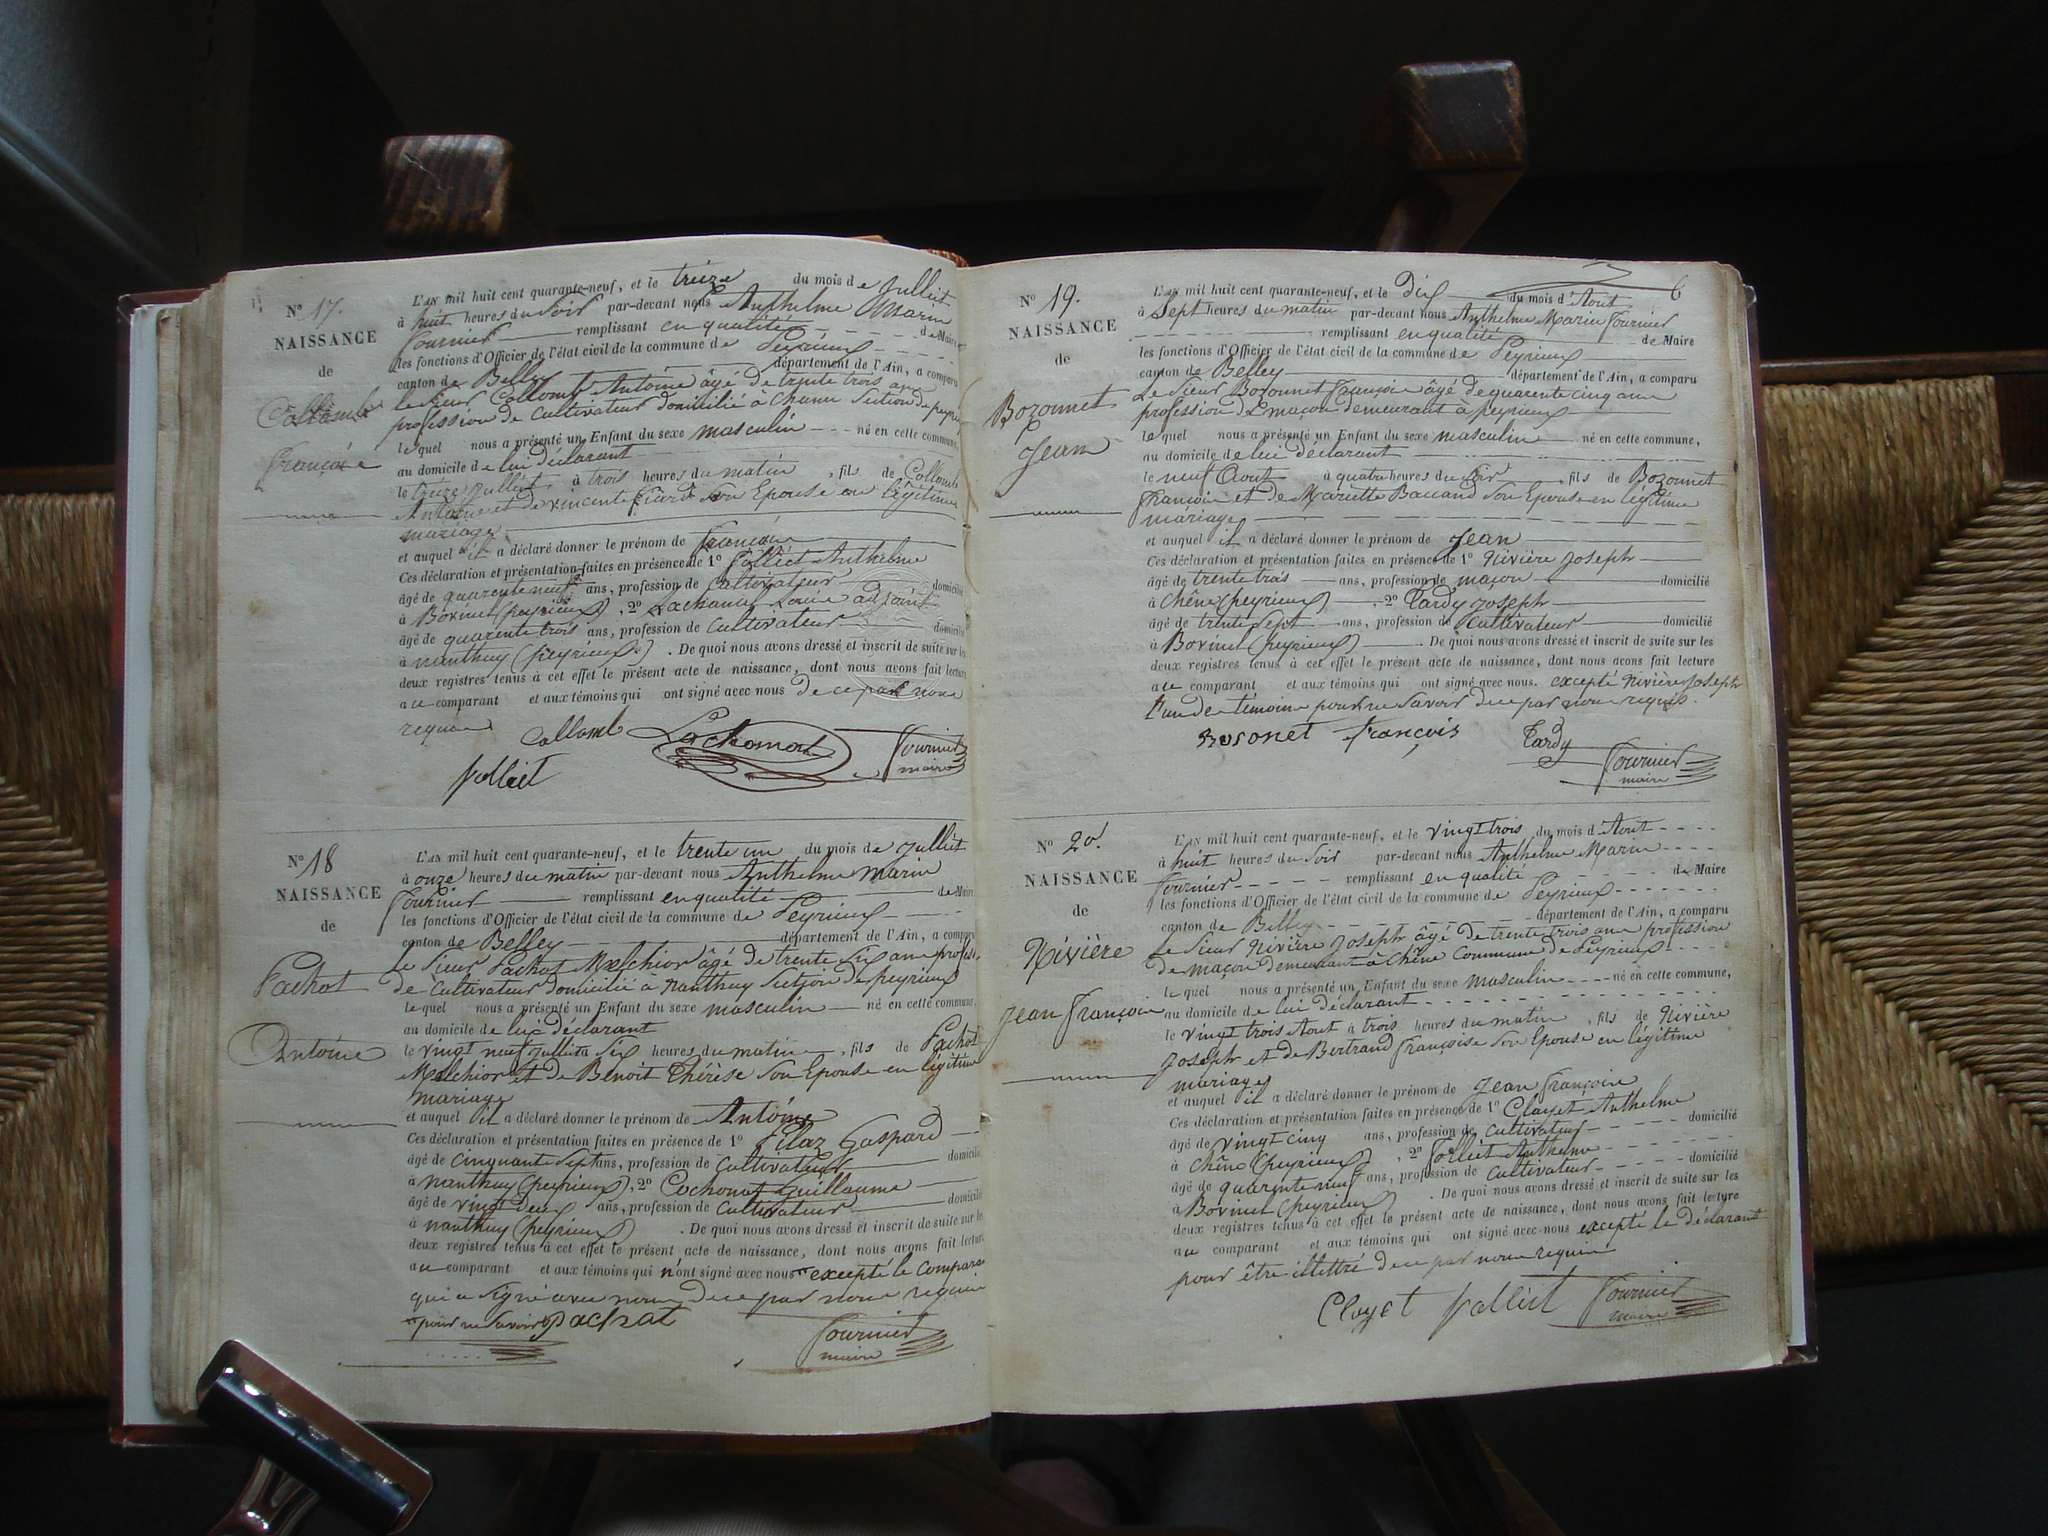 N° 17.
NAISSANCE
de
Collomb
François
L'AN mil huit cent quarante-neuf, et le treize du mois de Juillet
à huit heures du soir par-devant nous Anthelme Marin
Fournier remplissant en qualité de Maire
les fonctions d'Officier de l'état civil de la commune de Peyrieux
canton de Belley département de l'Ain, a comparu
le sieur Collomb Antoine âgé de trente trois ans
profession de cultivateur domicilié à section de peyrieux
lequel nous a présenté un Enfant du sexe masculin né en cette commune,
au domicile de lui déclarant
le treize juillet à trois heures du matin, fils de Collomb
Antoine et de vincente son Epouse en légitime
mariage
et auquel il a déclaré donner le prénom de François
Ces déclaration et présentation faites en présence de 1° Folliet Anthelme
âgé de quarente neuf ans, profession de cultivateur domicilié
à Bovinet (peyrieux), 2° adjoint
âgé de quarente trois ans, profession de cultivateur domicilié
à nanthuy (peyrieux). De quoi nous avons dressé et inscrit de suite sur les
deux registres tenus à cet effet le présent acte de naissance, dont nous avons fait lecture
au comparant et aux témoins qui ont signé avec nous de ce par nous
requis
Collomb Fournier
maire
folliet
N° 18
NAISSANCE
de
Pachot
Antoine
L'AN mil huit cent quarante-neuf, et le trente un du mois de Juillet
à onze heures du matin par-devant nous Anthelme Marin
Fournier remplissant en qualité de Maire
les fonctions d'Officier de l'état civil de la commune de Peyrieux
canton de Belley département de l'Ain, a comparu
Le Sieur Pachot Melchior âgé de trente six ans profess.
de cultivateur domicilié à nanthuy section de peyrieux
lequel nous a présenté un Enfant du sexe masculin né en cette commune
au domicile de lui déclarant
le vingt neuf juillet à six heures du matin, fils de Pachot
Melchior et de Benoit Thérèse son Epouse en légitime
mariage
et auquel il a déclaré donner le prénom de Antoine
Ces déclaration et présentation faites en présence de 1° Pilaz Gaspard
âgé de cinquante sept ans, profession de cultivateur domicilié
à nanthuy (peyrieux), 2° Cochonat Guillaume
âgé de vingt deux ans, profession de cultivateur domicilié
à nanthuy (peyrieux). De quoi nous avons dressé et inscrit de suite sur les
deux registres tenus à cet effet le présent acte de naissance, dont nous avons fait lecture
au comparant et aux témoins qui n'ont signé avec nous excepté le comparant
qui a signé avec nous de ce par nous requis
pour ne savoir Pachot
Fournier
maire
6
N° 19.
NAISSANCE
de
Bozonnet
Jean
L'AN mil huit cent quarante-neuf, et le Dix du mois d'Aout
à sept heures du matin par-devant nous Anthelme Marin Fournier
remplissant en qualité de Maire
les fonctions d'Officier de l'état civil de la commune de Peyrieux
canton de Belley département de l'Ain, a comparu
Le Sieur Bozonnet François âgé de quarente cinq ans
profession de maçon demeurant à peyrieux
lequel nous a présenté un Enfant du sexe masculin né en cette commune,
au domicile de lui déclarant
le neuf Aout à quatre heures du soir fils de Bozonnet
François et de Mariette Baccand son Epouse en légitime
mariage
et auquel il a déclaré donner le prénom de Jean
Ces déclaration et présentation faites en présence de 1° Nivière Joseph
âgé de trente trois ans, profession de maçon domicilié
à Chêne (peyrieux), 2° Tardy Joseph
âgé de trente sept ans, profession de cultivateur domicilié
à Bovinet (peyrieux). De quoi nous avons dressé et inscrit de suite sur les
deux registres tenus à cet effet le présent acte de naissance, dont nous avons fait lecture
au comparant et aux témoins qui ont signé avec nous. excepté Nivière Joseph
l'un des témoins pour ne savoir de ce par nous requis.
Bosonet françois Tardy Fournier
maire
N° 20.
NAISSANCE
de
Nivière
Jean François
L'AN mil huit cent quarante-neuf, et le vingt trois du mois d'Aout
à huit heures du soir par-devant nous Anthelme Marin
Fournier remplissant en qualité de Maire
les fonctions d'Officier de l'état civil de la commune de Peyrieux
canton de Belley département de l'Ain, a comparu
Le Sieur Nivière Joseph âgé de trente trois ans profession
de maçon demeurant à Chêne Commune de Peyrieux
lequel nous a présenté un Enfant du sexe masculin né en cette commune,
au domicile de lui déclarant
le vingt trois Aout à trois heures du matin, fils de Nivière
Joseph et de Bertrand Françoise son Epouse en légitime
mariage
et auquel il a déclaré donner le prénom de Jean François
Ces déclaration et présentation faites en présence de 1° Clayet Anthelme
âgé de vingt cinq ans, profession de cultivateur domicilié
à Chêne (peyrieux), 2° Folliet Anthelme
âgé de quarente neuf ans, profession de cultivateur domicilié
à Bovinet (peyrieux). De quoi nous avons dressé et inscrit de suite sur les
deux registres tenus à cet effet le présent acte de naissance, dont nous avons fait lecture
au comparant et aux témoins qui ont signé avec nous excepté le déclarant
pour être illettré de ce par nous requis
Clayet folliet Fournier
maire